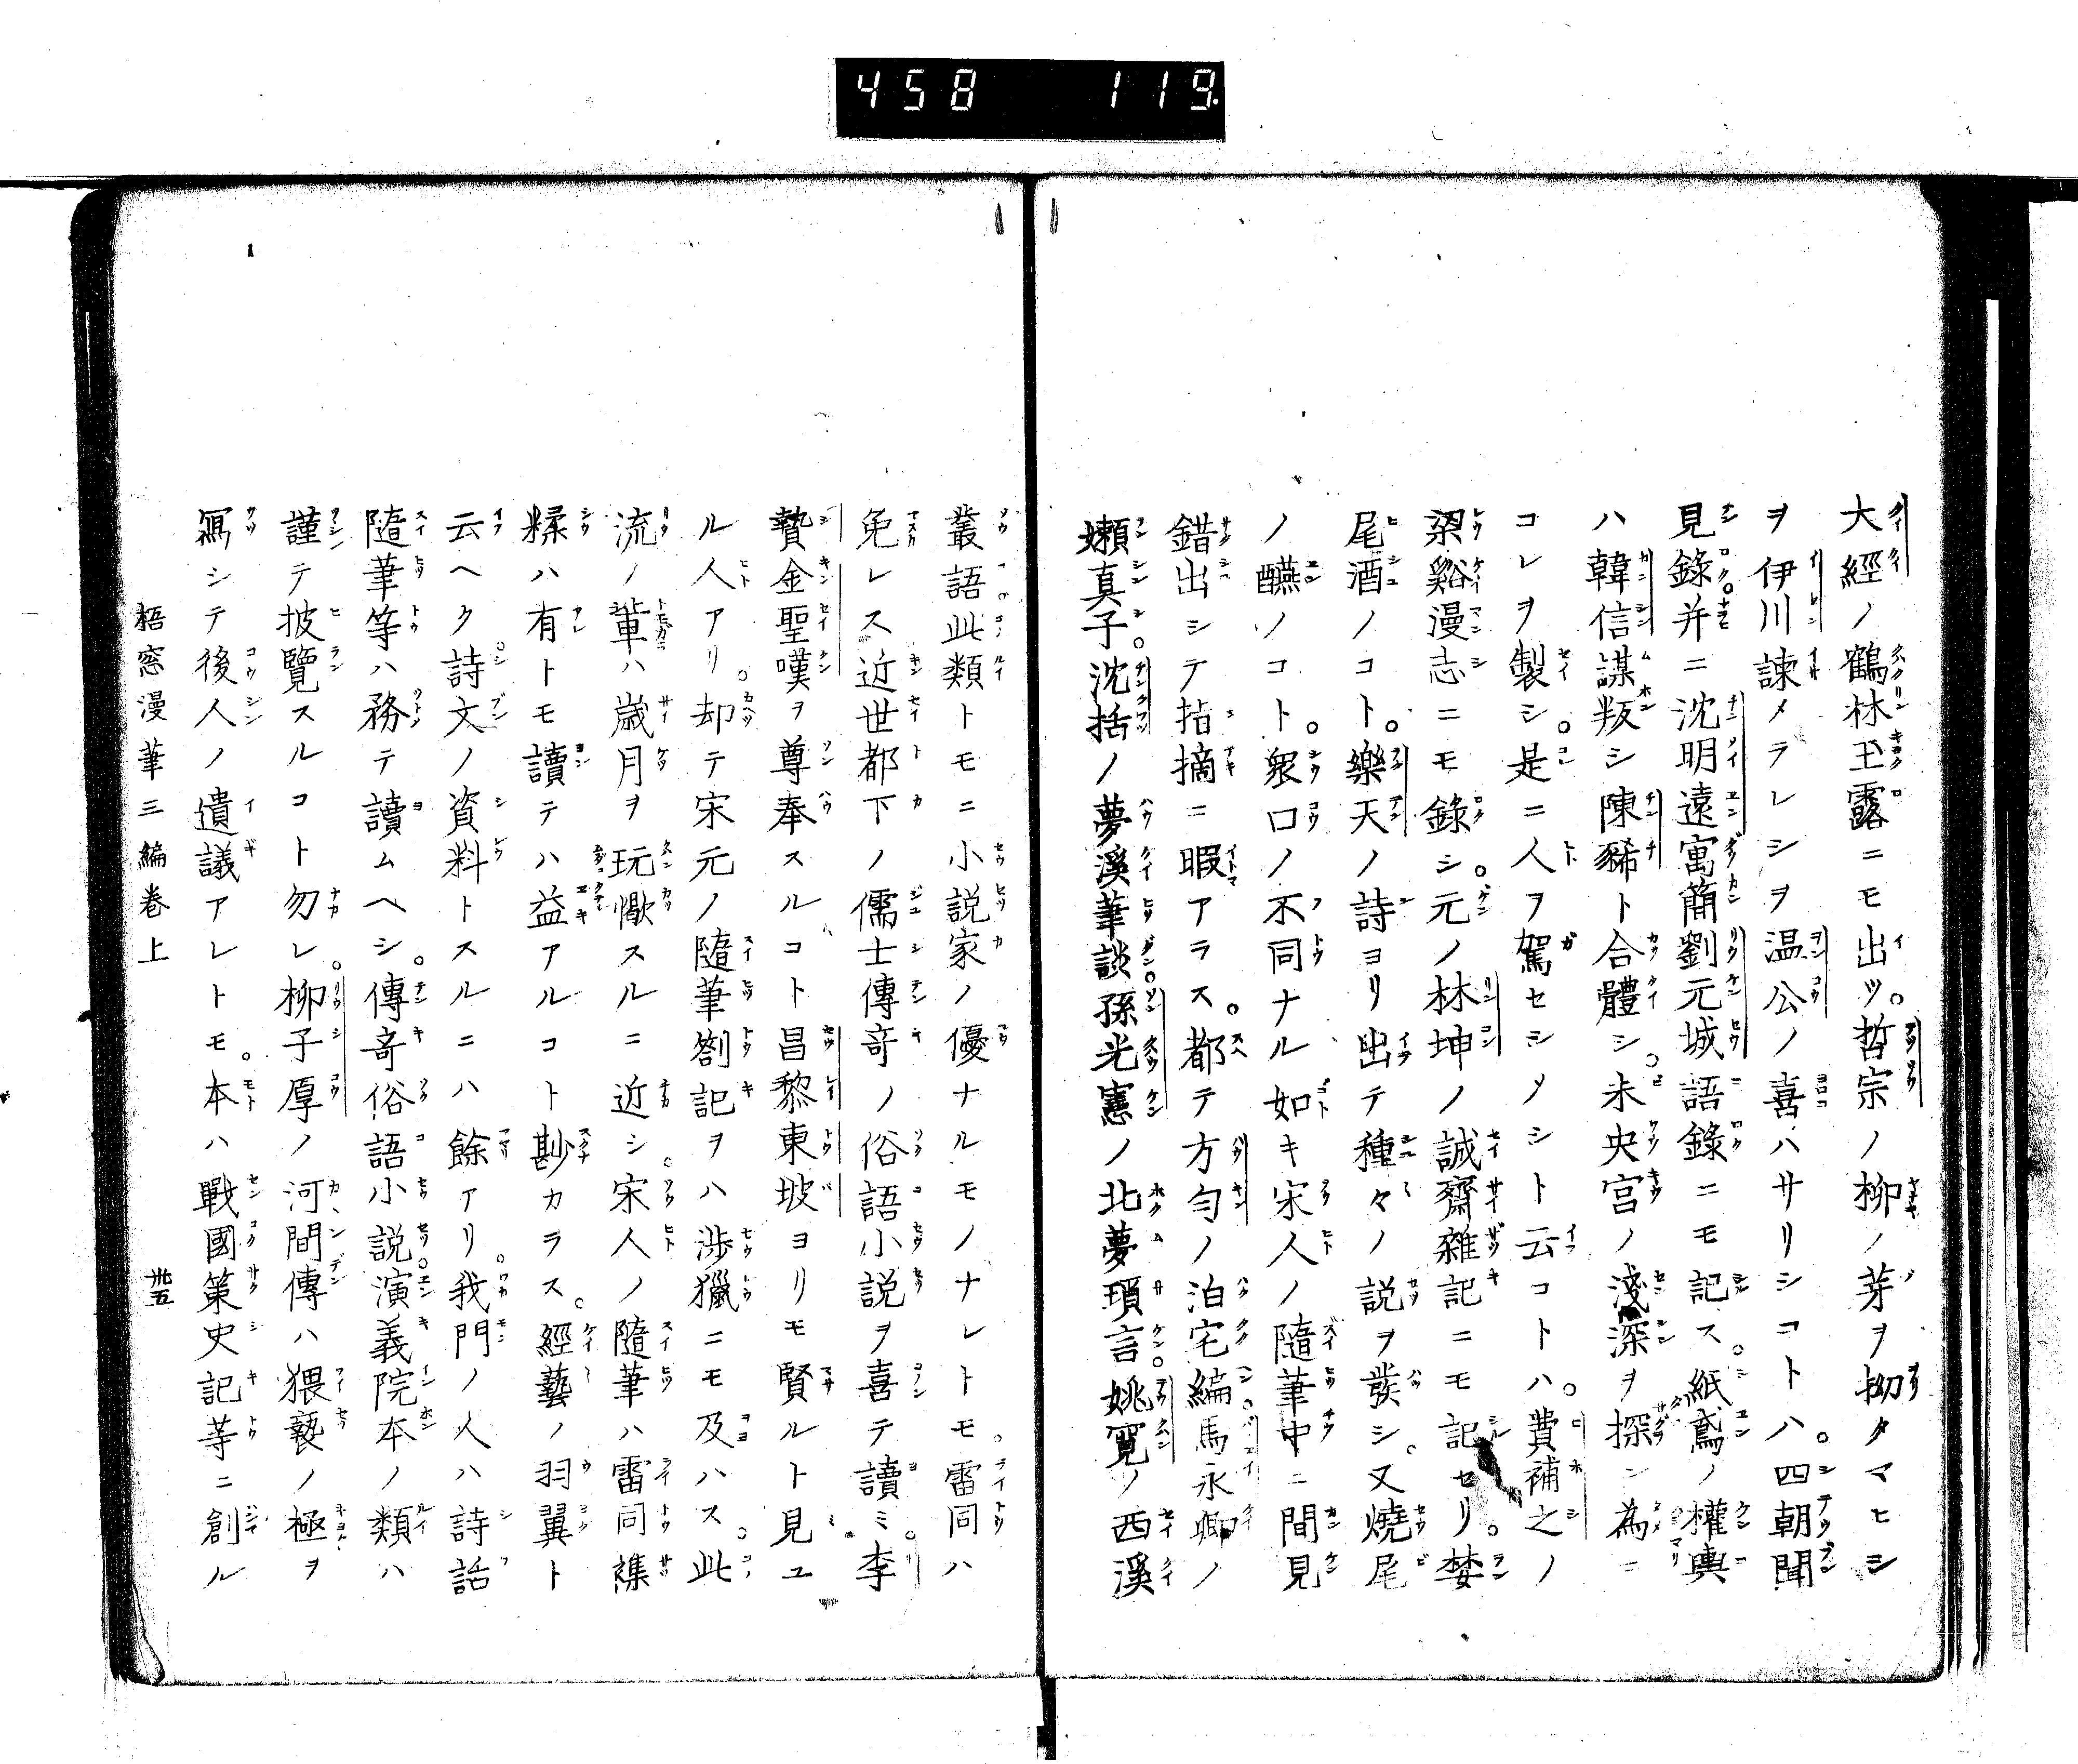 458 119
大經ノ鶴林玉露ニモ出ツ。哲宗ノ柳ノ芽ヲ拗タマヒシ
ヲ伊川諫メラレシヲ温公ノ喜ハサリシコトハ。四朝聞
見錄。并ニ沈明遠寓簡劉元城語錄ニモ記ス。紙鳶ノ權輿
ハ韓信謀叛シ陳豨ト合體シ。未央宮ノ淺深ヲ探ン為ニ
コレヲ製シ。是ニ人ヲ駕セシメシト云コトハ。費補之ノ
梁谿漫志ニモ錄シ。元ノ林坤ノ誠齋雜記ニモ記セリ。婪
尾酒ノコト。樂天ノ詩ヨリ出テ種々ノ説ヲ發シ。又燒尾
ノ醼ノコト。衆口ノ不同ナル如キ宋人ノ隨筆中ニ間見
錯出シテ指摘ニ暇アラス。都テ方勻ノ泊宅編。馬永卿ノ
嬾真子。沈括ノ夢溪筆談。孫光憲ノ北夢瑣言。姚寬ノ西溪
叢語此類トモニ小説家ノ優ナルモノナレトモ。雷同ハ
免レス近世都下ノ儒士傳竒ノ俗語小説ヲ喜テ讀ミ。李
贄金聖嘆ヲ尊奉スルコト昌黎東坡ヨリモ賢ルト見ユ
ル人アリ。却テ宋元ノ隨筆劄記ヲハ渉獵ニモ及ハス。此
流ノ輩ハ歳月ヲ玩愒スルニ近シ。宋人ノ隨筆ハ雷同襍
糅ハ有トモ讀テハ益アルコト尠カラス。經藝ノ羽翼ト
云ヘク。詩文ノ資料トスルニハ餘アリ。我門ノ人ハ詩話
隨筆等ハ務テ讀ムヘシ。傳竒俗語小説。演義院本ノ類ハ
謹テ披覽スルコト勿レ。柳子厚ノ河間傳ハ猥褻ノ極ヲ
寫シテ後人ノ遺議アレトモ。本ハ戰國策史記等ニ創ル
梧窓漫筆三編卷上 卅五